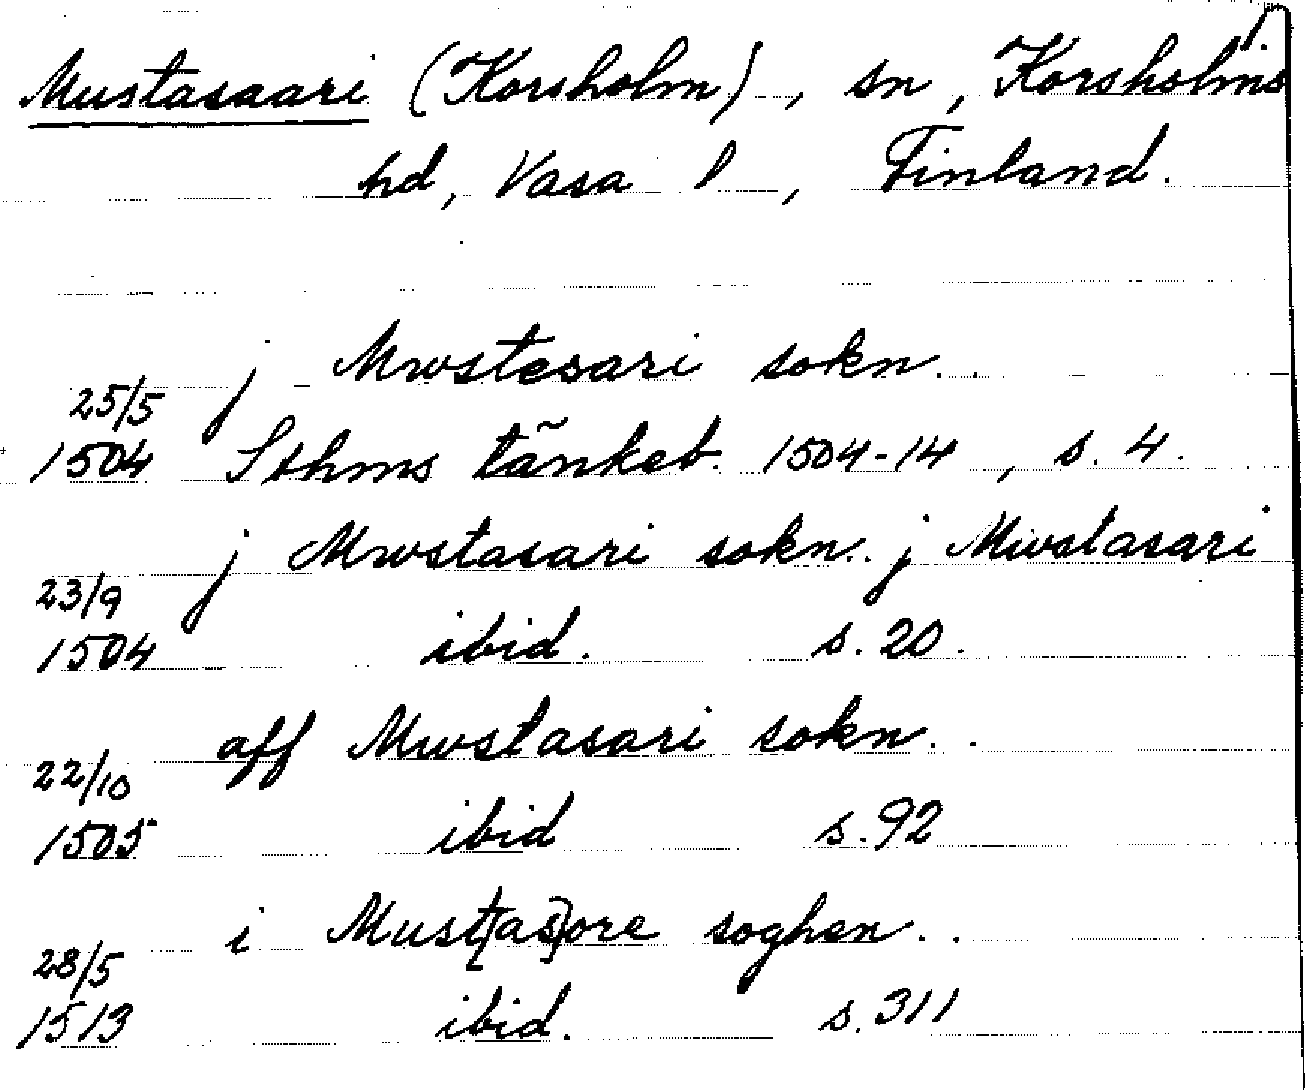 Mustasaari (Korsholm), sn, Korsholms
hd, Vasa l, Finland.
j Mwstesari sokn..
25/5
1504 Sthms tänkeb. 1504-14, s. 4.
j Mwstasari sokn.. j Mwstasari
23/9
1504 ibid. s. 20.
aff Mwstasari sokn..
22/10
1505 ibid s. 92
i Must[as]ore soghen..
28/5
1513 ibid. s. 311